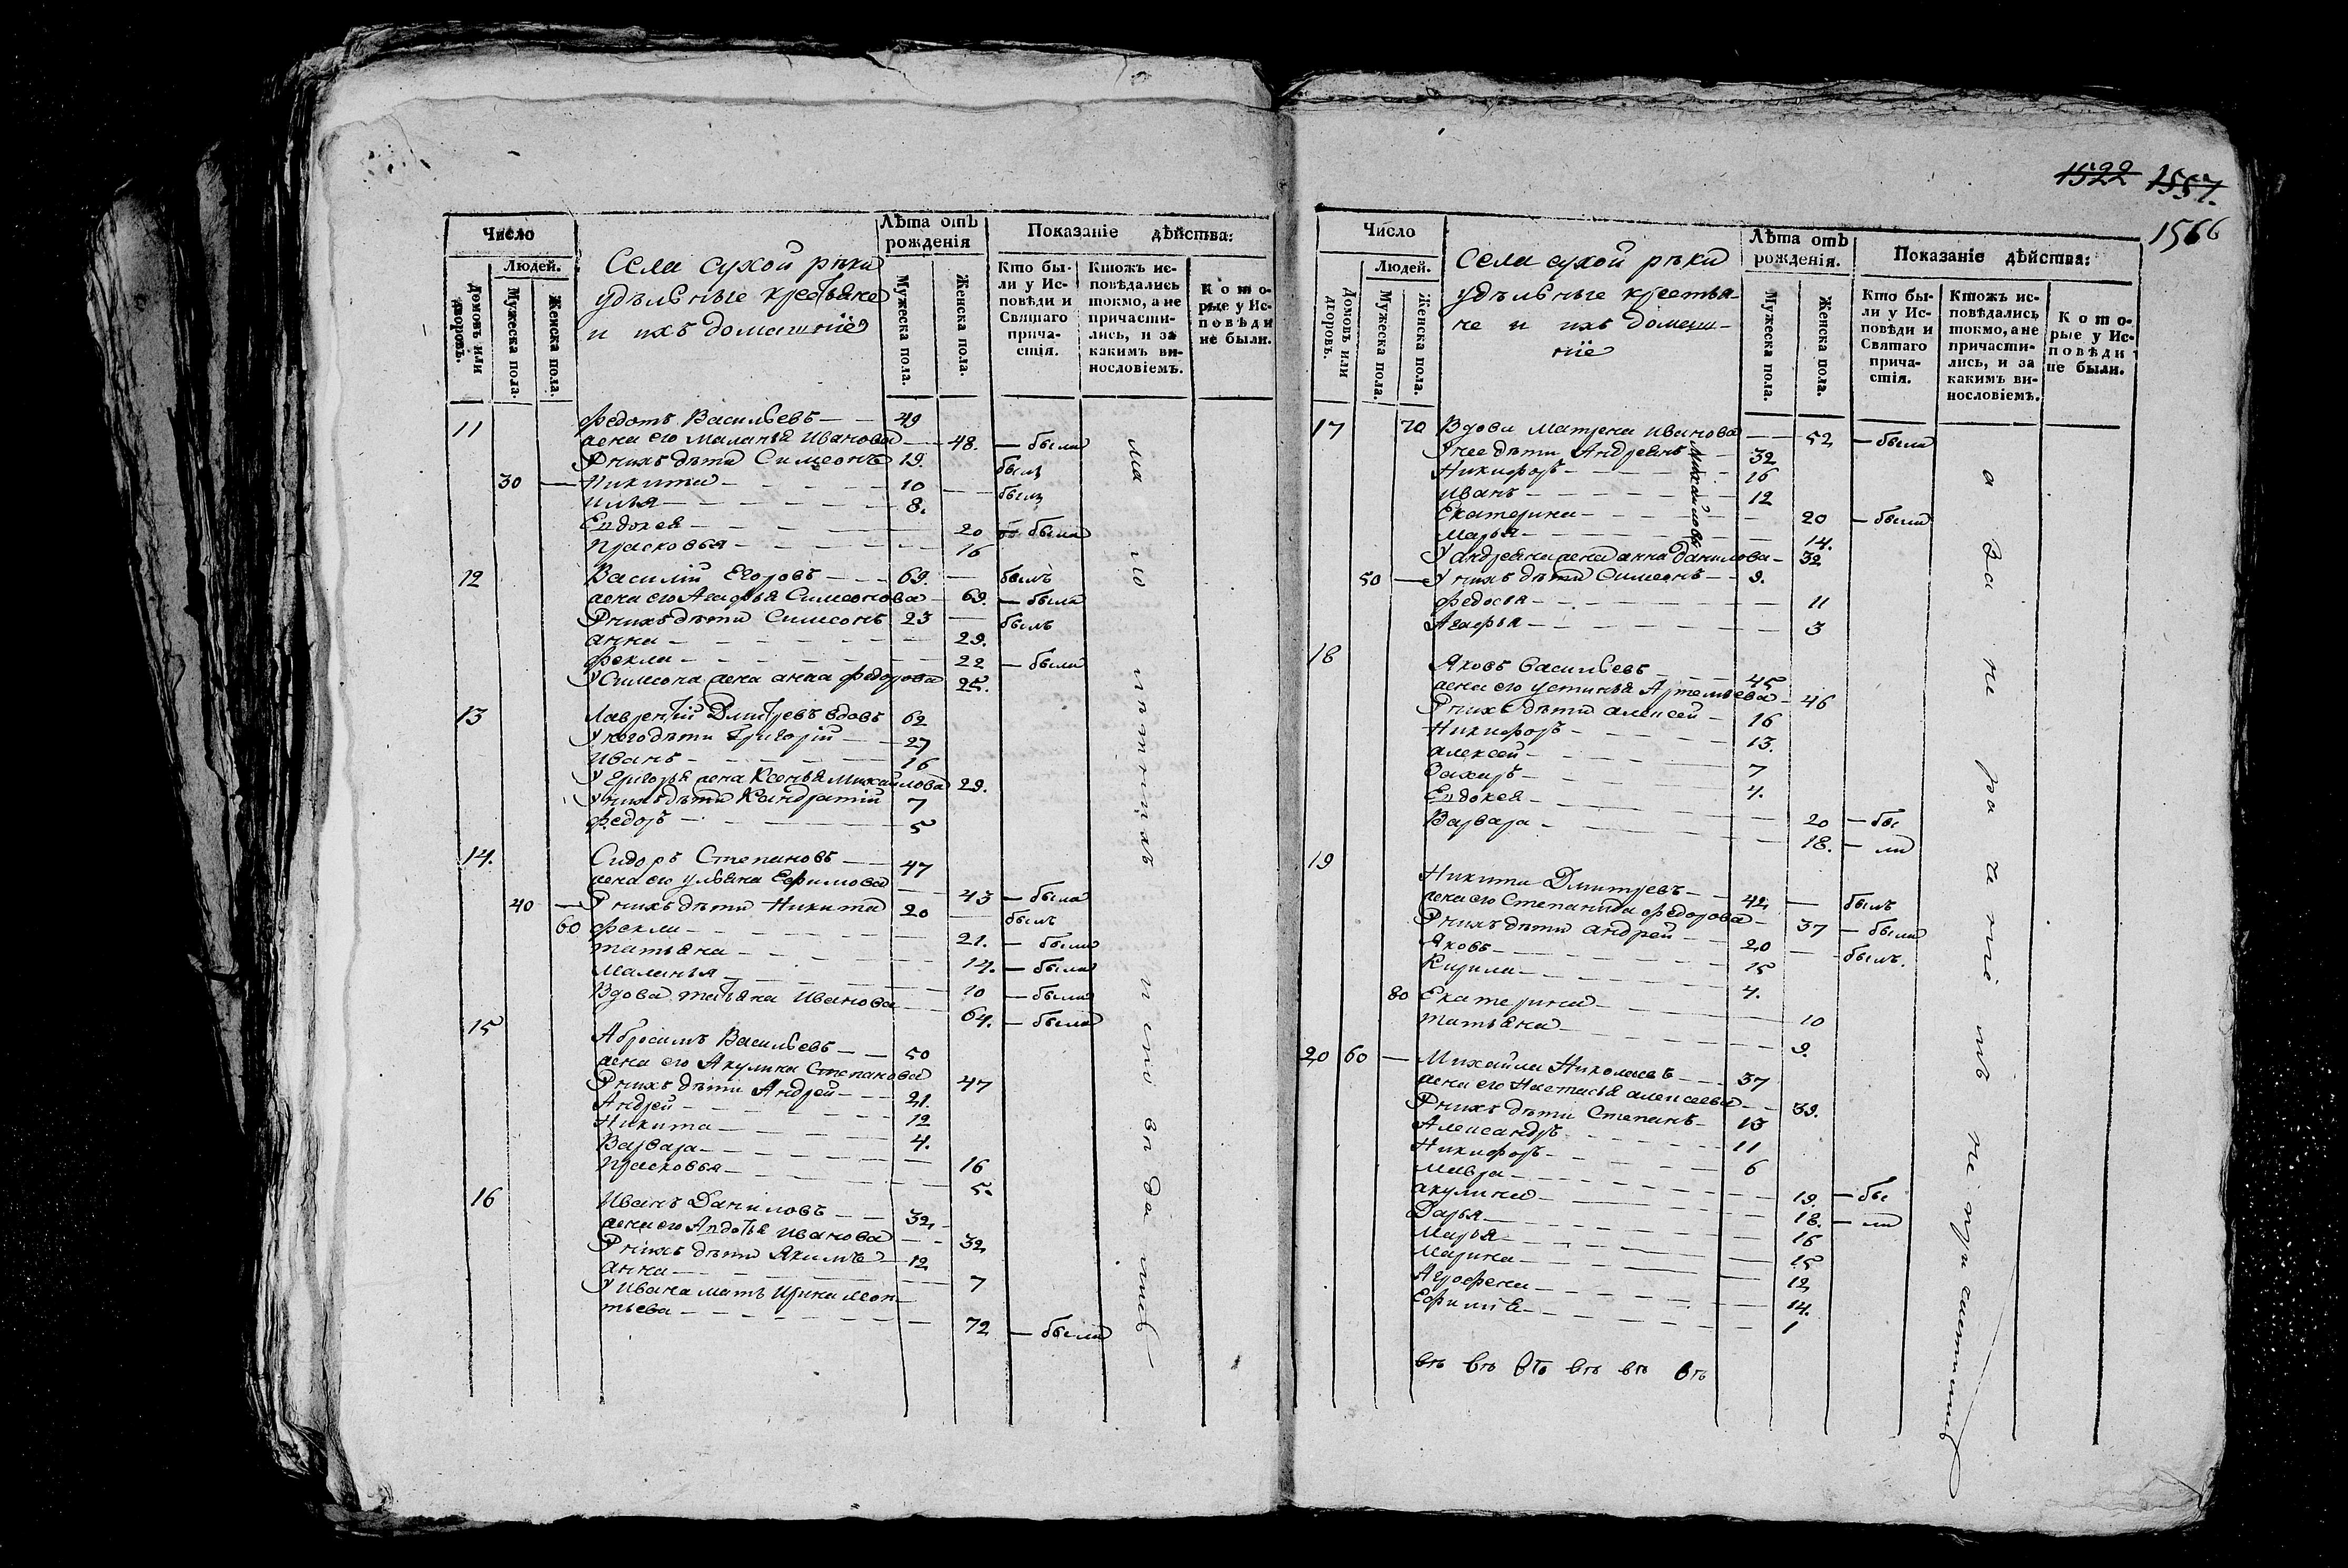 Число
Людей.
Домовъ или дворовъ.
Мужеска пола.
Женска пола.
Села сухой рѣки
удѣльные крестьяне
и ихъ домашнїе
Лѣта отъ рожденія
Мужеска пола.
Женска пола.
Показаніе дѣйства:
Кто были у Исповѣди и Святаго причастія.
Ктожъ исповѣдались токмо, а не причастились, и за какимъ винословіемъ.
Которые у Исповѣди не были.
11 Федотъ Васильевъ 49
жена его Маланья Иванова 48. была
У нихъ дѣти Симеонъ 19. былъ
30 Никита 10 былъ
Илья 8.
Евдокея 20 была
Прасковья 16
12 Василій Егоровъ 69. былъ
жена его Агафья Симеонова 69. была
У нихъ дѣти Симеонъ 23 былъ
Анна 29.
Фекла 22 были
У Симеона жена Анна Федорова 25.
13 Лаврентій Дмитревъ вдовъ 62
У него дѣти Григорій 27
Иванъ 16
У Григорья жена Ксенья Михайлова 29.
У нихъ дѣти Кандратій 7
Федоръ 5
14. Сидоръ Степановъ 47
жена его Ульяна Ефимова 43 была
40 У нихъ дѣти Никита 20 былъ
60 Фекла 21. была
Татьяна 14. была
Маланья 10 была
Вдова Татьяна Иванова 64. была
15 Абросимъ Васильевъ 50
жена его Акулина Степанова 47
У нихъ дѣти Андрей 21.
Андрей 12
Никита 4.
Варвара 16
Прасковья 5.
16 Иванъ Даниловъ 32
жена его Авдотья Иванова 32
У нихъ дѣти Якимъ 12
Анна 7
У Ивана мать Ирина Леон-
тьева 72 были
1522 1557.
1566
Число
Людей.
Домовъ или дворовъ.
Мужеска пола.
Женска пола.
Села сухой рѣки
удѣльные крестья-
не и ихъ домаш-
нїе
Лѣта отъ рожденія.
Мужеска пола.
Женска пола.
Показаніе дѣйства:
Кто были у Исповѣди и Святаго причастія.
Ктожъ исповѣдались токмо, а не причастились, и за какимъ винословіемъ.
Которые у Исповѣди не были.
17 70 Вдова Матрена Иванова 52 была
У нее дѣти Андреянъ 32
Михайловы
Никифоръ 16
Иванъ 12
Екатерина 20 были
Марья 14.
У Андреяна жена Анна Данилова 32
50 У нихъ дѣти Симеонъ 9.
Федосья 11
Агафья 3
18 Яковъ Васильевъ 45
жена его Устинья Артемьева 46
У нихъ дѣти Алексей 16
Никифоръ 13.
Алексей 7
Захаръ 4.
Евдокея 20 бы
Варвара 18. ли
19 Никита Дмитревъ 42 былъ
жена его Степанида Федорова 37 была
У нихъ дѣти Андрей 20 былъ.
Яковъ 15
Кирила 4.
80 Екатерина 10
Татьяна 9.
20 60 Михайла Николаевъ 37
жена его Настасья Алексеева 39.
У нихъ дѣти Степанъ 13
Александръ 11
Никифоръ 6
Мавра 19. бы
Акулина 18. ли
Дарья 16
Марья 15
Марина 12
Агрофена 14.
Ефимія 1
за не ра че ніе мъ не при частились